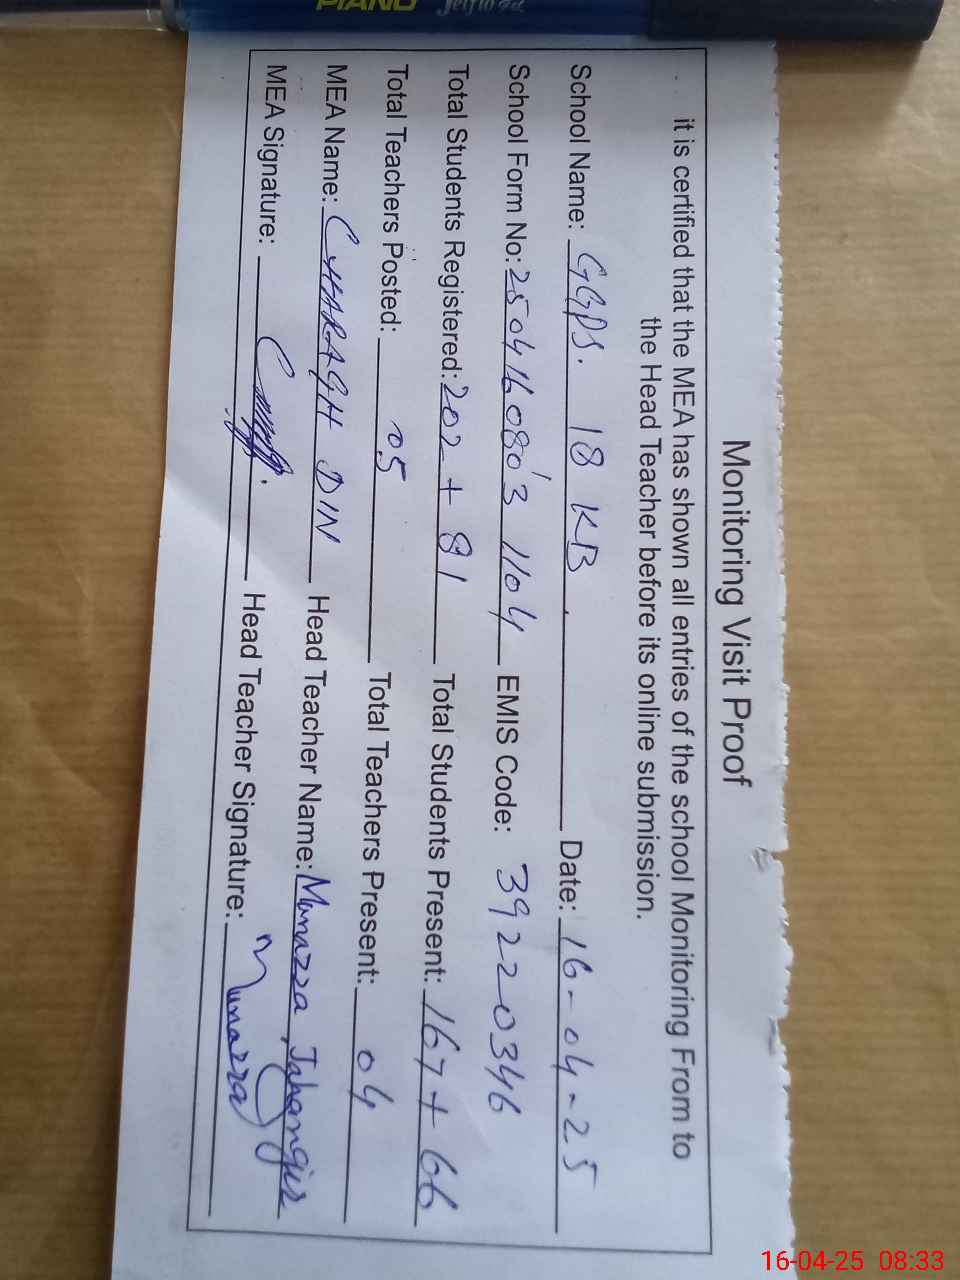 PIANO
Monitoring Visit Proof
it is certified that the MEA has shown all entries of the school Monitoring From to
the Head Teacher before its online submission.
School Name: GGPS. 18 KB. Date: 16-04-25
School Form No: 250416080'3 1104 EMIS Code: 39220346
Total Students Registered: 202 + 81 Total Students Present: 167 + 66
Total Teachers Posted: 05 Total Teachers Present: 04
MEA Name: CHARAGH DIN Head Teacher Name: Munazza Jahangir
MEA Signature: Head Teacher Signature: Munazza
16-04-25 08:33